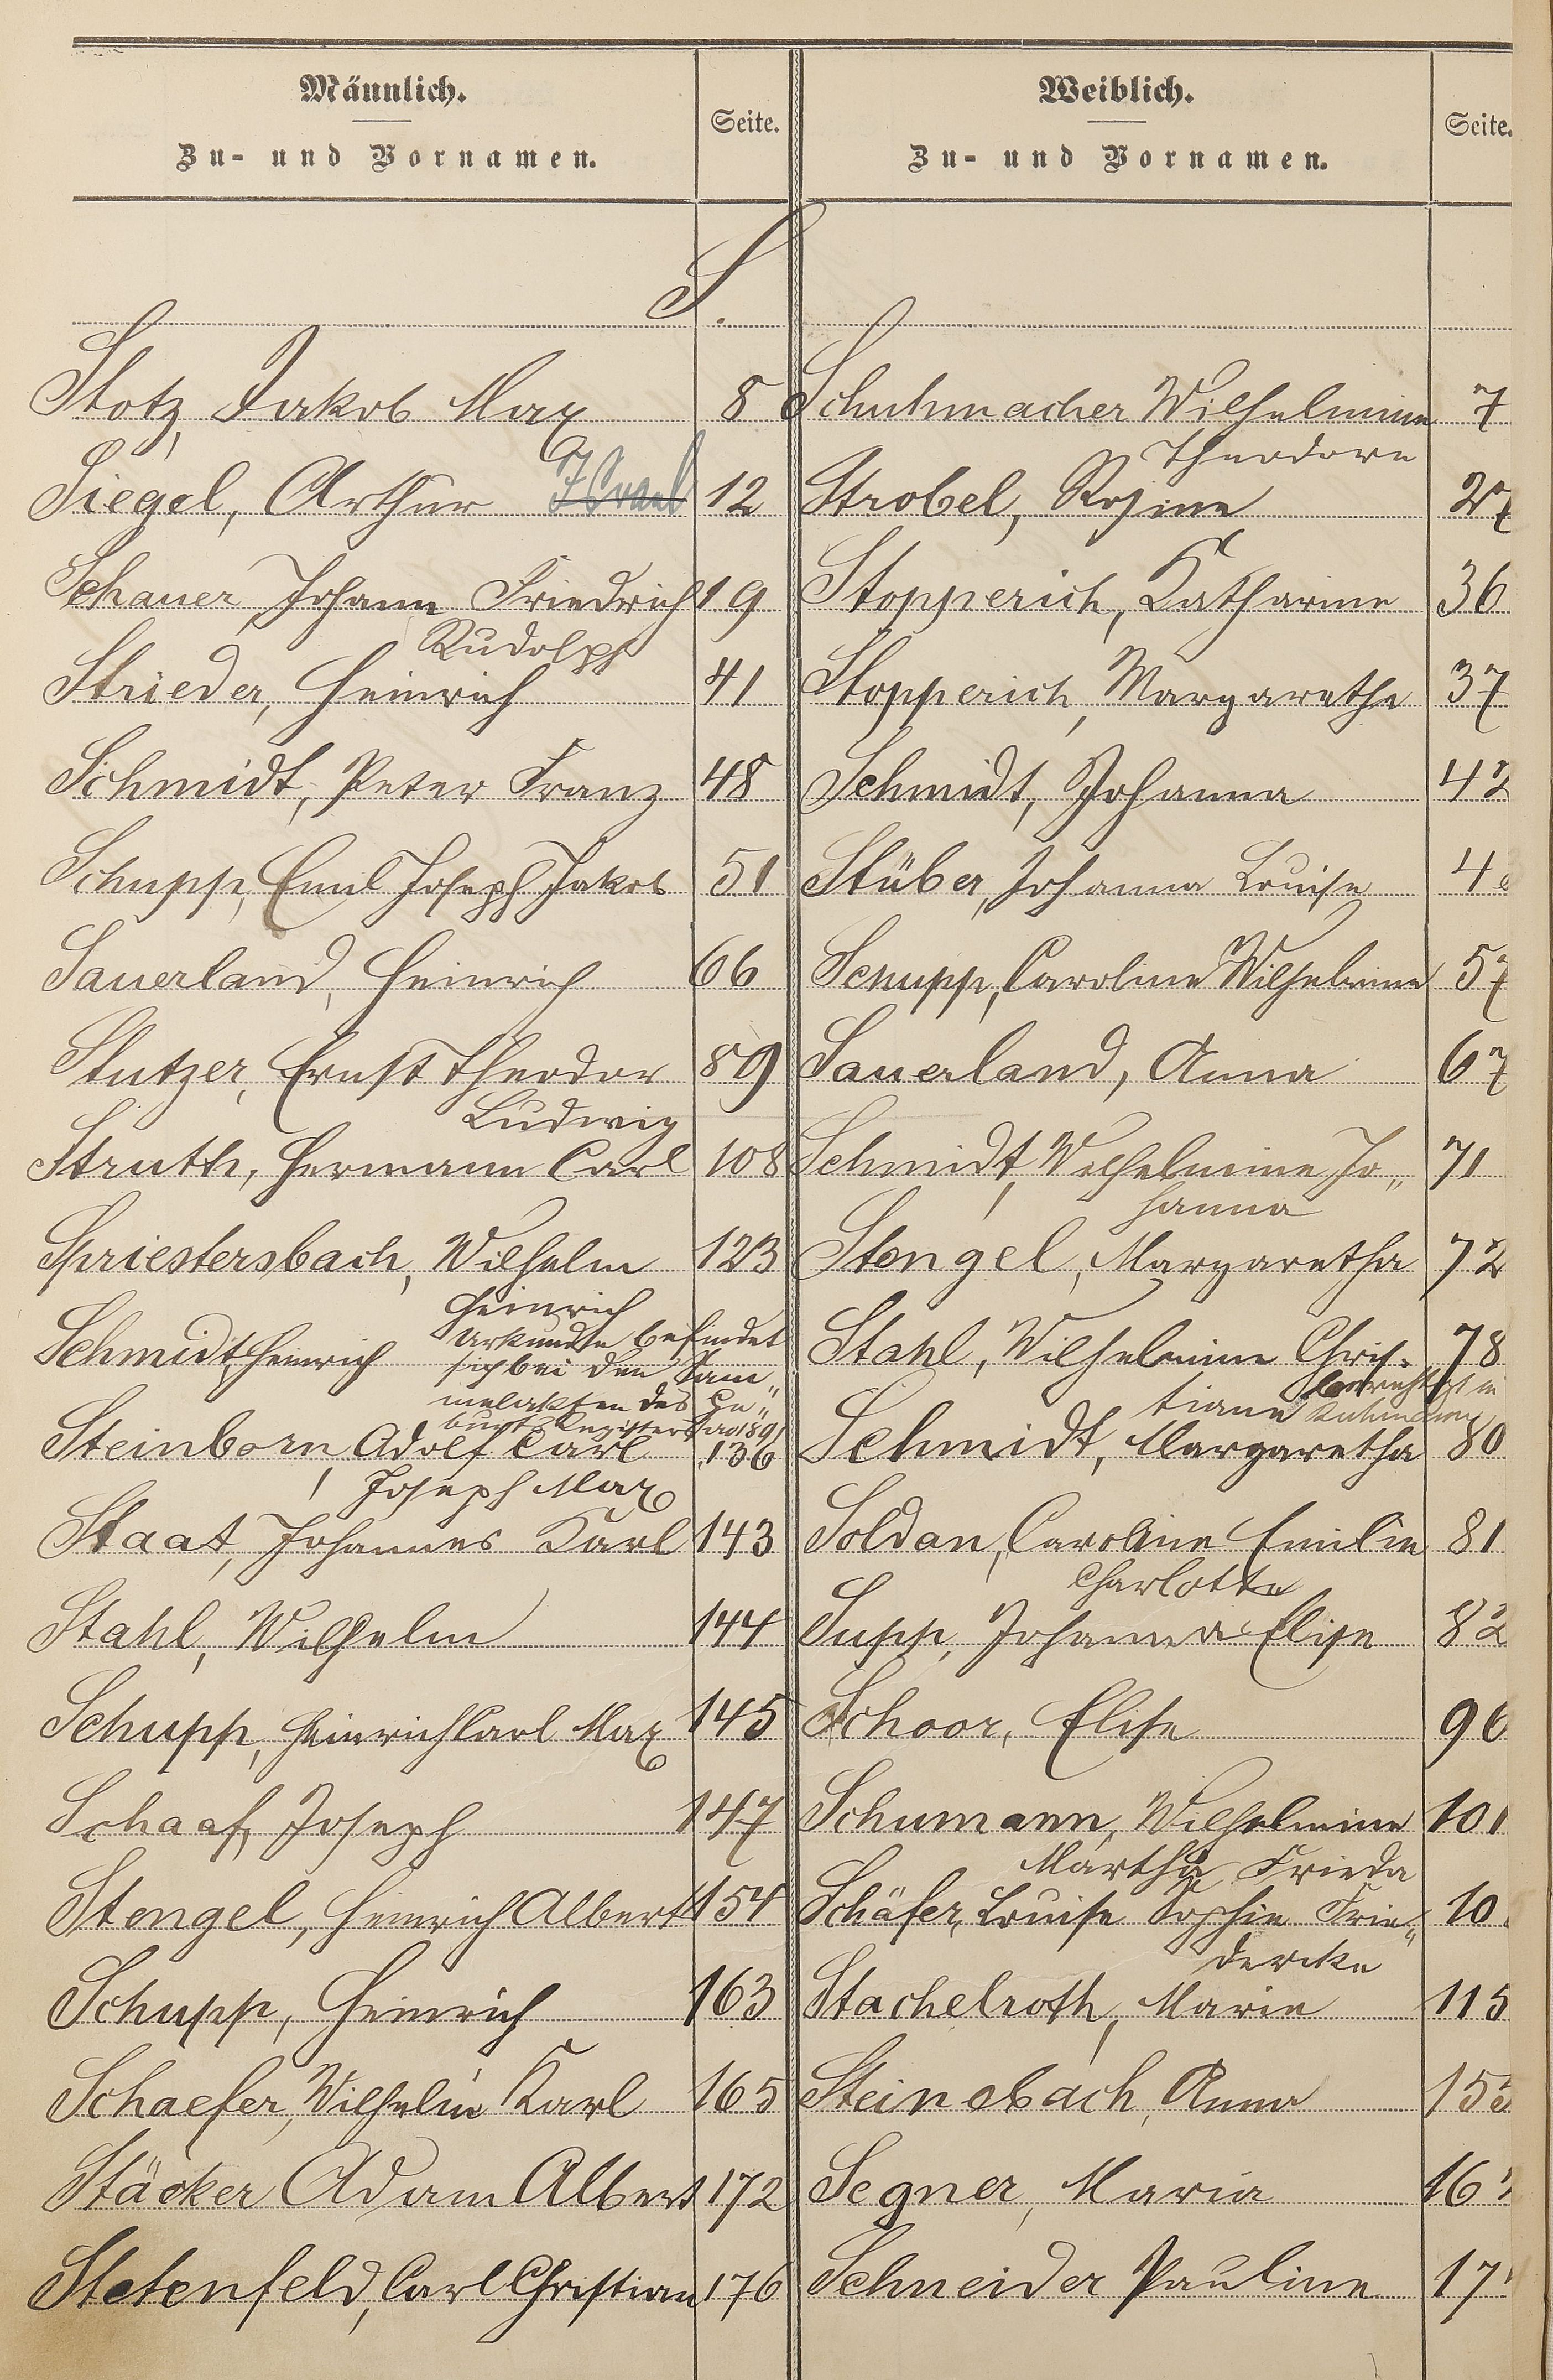 Männlich.
Zu- und Vornamen.
Seite.
Weiblich.
Zu- und Vornamen.
Seite.
S.
Stotz, Jakob Max 8
Siegel, Arthur Israel 12
Schauer Johann Friedrich 19
Rudolph
Strieder, Heinrich 41
Schmidt, Peter Franz 48
Schupp, Emil Joseph Jakob 51
Sauerland, Heinrich 66
Stutzer, Ernst Theodor 89
Ludwig
Struth, Hermann Carl 108
Spriestersbach, Wilhelm 123
Heinrich
Schmidt, Heinrich
Urkunde befindet
sich bei den Sam„
melakten des Ge„
burts Registers
Steinborn, Adolf Carl 136
Joseph Max
Staat, Johannes Karl 143
Stahl, Wilhelm 144
Schupp, Heinrich Carl Max 145
Schaaf, Joseph 147
Stengel, Heinrich Albert 154
Schupp, Heinrich 163
Schaefer, Wilhelm Karl 165
Stäcker Adam Albert 172
Stetenfeld, Carl Christian 176
Schuhmacher Wilhelmine 7
Theodore
Strobel, Rosine 27
Stopperich, Katharine 36
Stopperich, Margarethe 37
Schmidt, Johanna 42
Stüber, Johanna Louise 4
Schupp, Caroline Wilhelmine 57
Sauerland, Anna 67
Schmidt, Wilhelmine Jo„ 71
hanna
Stengel, Margaretha 72
Stahl, Wilhelmine Chris- 78
tiane
Schmidt, Margaretha 80
Soldan, Caroline Emilie 81
Charlotte
Supp, Johanna Elise 82
Schoor, Elise 96
Schumann, Wilhelmine 101
Martha Frieda
Schäfer, Louise Sophie Frie„ 10
dericke
Stachelroth, Marie 115
Steinebach, Anna 153
Segner, Maria 16
Schneider Pauline 17